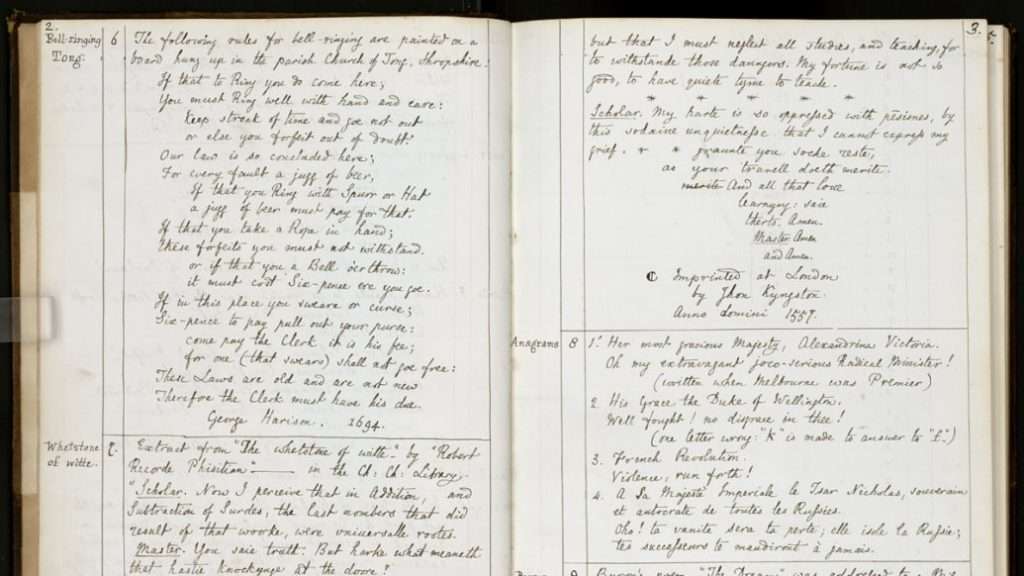 2.
Bell-ringing
Tong.
6
The following rules for bell-ringing are painted on a
board hung up in the parish Church of Tong, Shropshire:
If that to Ring you do come here;
You must Ring well with hand and eare:
Keep streak of time and goe not out
or else you forfeit out of doubt.
Our law is so concluded here;
For every fault a jugg of beer,
If that you Ring with Spurr or Hat
a jugg of beer must pay for that.
If that you take a Rope in hand;
these forfeits you must not withstand.
or if that you a Bell o'erthrow:
it must cost Six-pence ere you goe.
If in this place you sweare or curse;
Six-pence to pay pull out your purse:
come pay the Clerk it is his fee;
for one (that swears) shall not goe free:
These Laws are old and are not new
Therefore the Clerk must have his due.
George Harison. 1694.
Whetstone
of witte.
7.
Extract from "The whetstone of witte" by "Robert
Recorde Phisitian" — in the Ch: Ch: Library.
"Scholar. Now I perceive that in Addition, and
Subtraction of Surdes, the last nombers that did
result of that woorke, were universalle rootes.
Master. You saie truth. But harke what meaneth
that hastie knockyng at the doore?
3.
but that I must neglect all studies, and teaching, for
to withstande those daungers. My fortune is not so
good, to have quiete tyme to teache.
* * * * *
Scholar. My harte is so oppressed with pesivnes, by
this sodaine unquietnesse that I cannot expresse my
grief. * * graunte you soche reste,
as your travell doeth merite.
merite And all that love
learnyng: saie
therto. Amen.
Master Amen
and Amen.
Imprinted at London
by Jhon Kyngston.
Anno domini 1557.
Anagrams
8
1. Her most gracious Majesty, Alexandrina Victoria.
Oh my extravagant joco-serious Radical Minister!
(written when Melbourne was Premier)
2. His Grace the Duke of Wellington.
Well fought! no disgrace in thee!
(one letter wrong: "k" is made to answer to "t".)
3. French Revolution.
Violence, run forth!
4. A Sa Majesté Imperiale le Tsar Nicholas, souverain
et autocrate de toutes les Russies.
Oho! ta vanite sera ta perte; elle isole la Russie;
tes successeurs te maudiront à jamais.
9